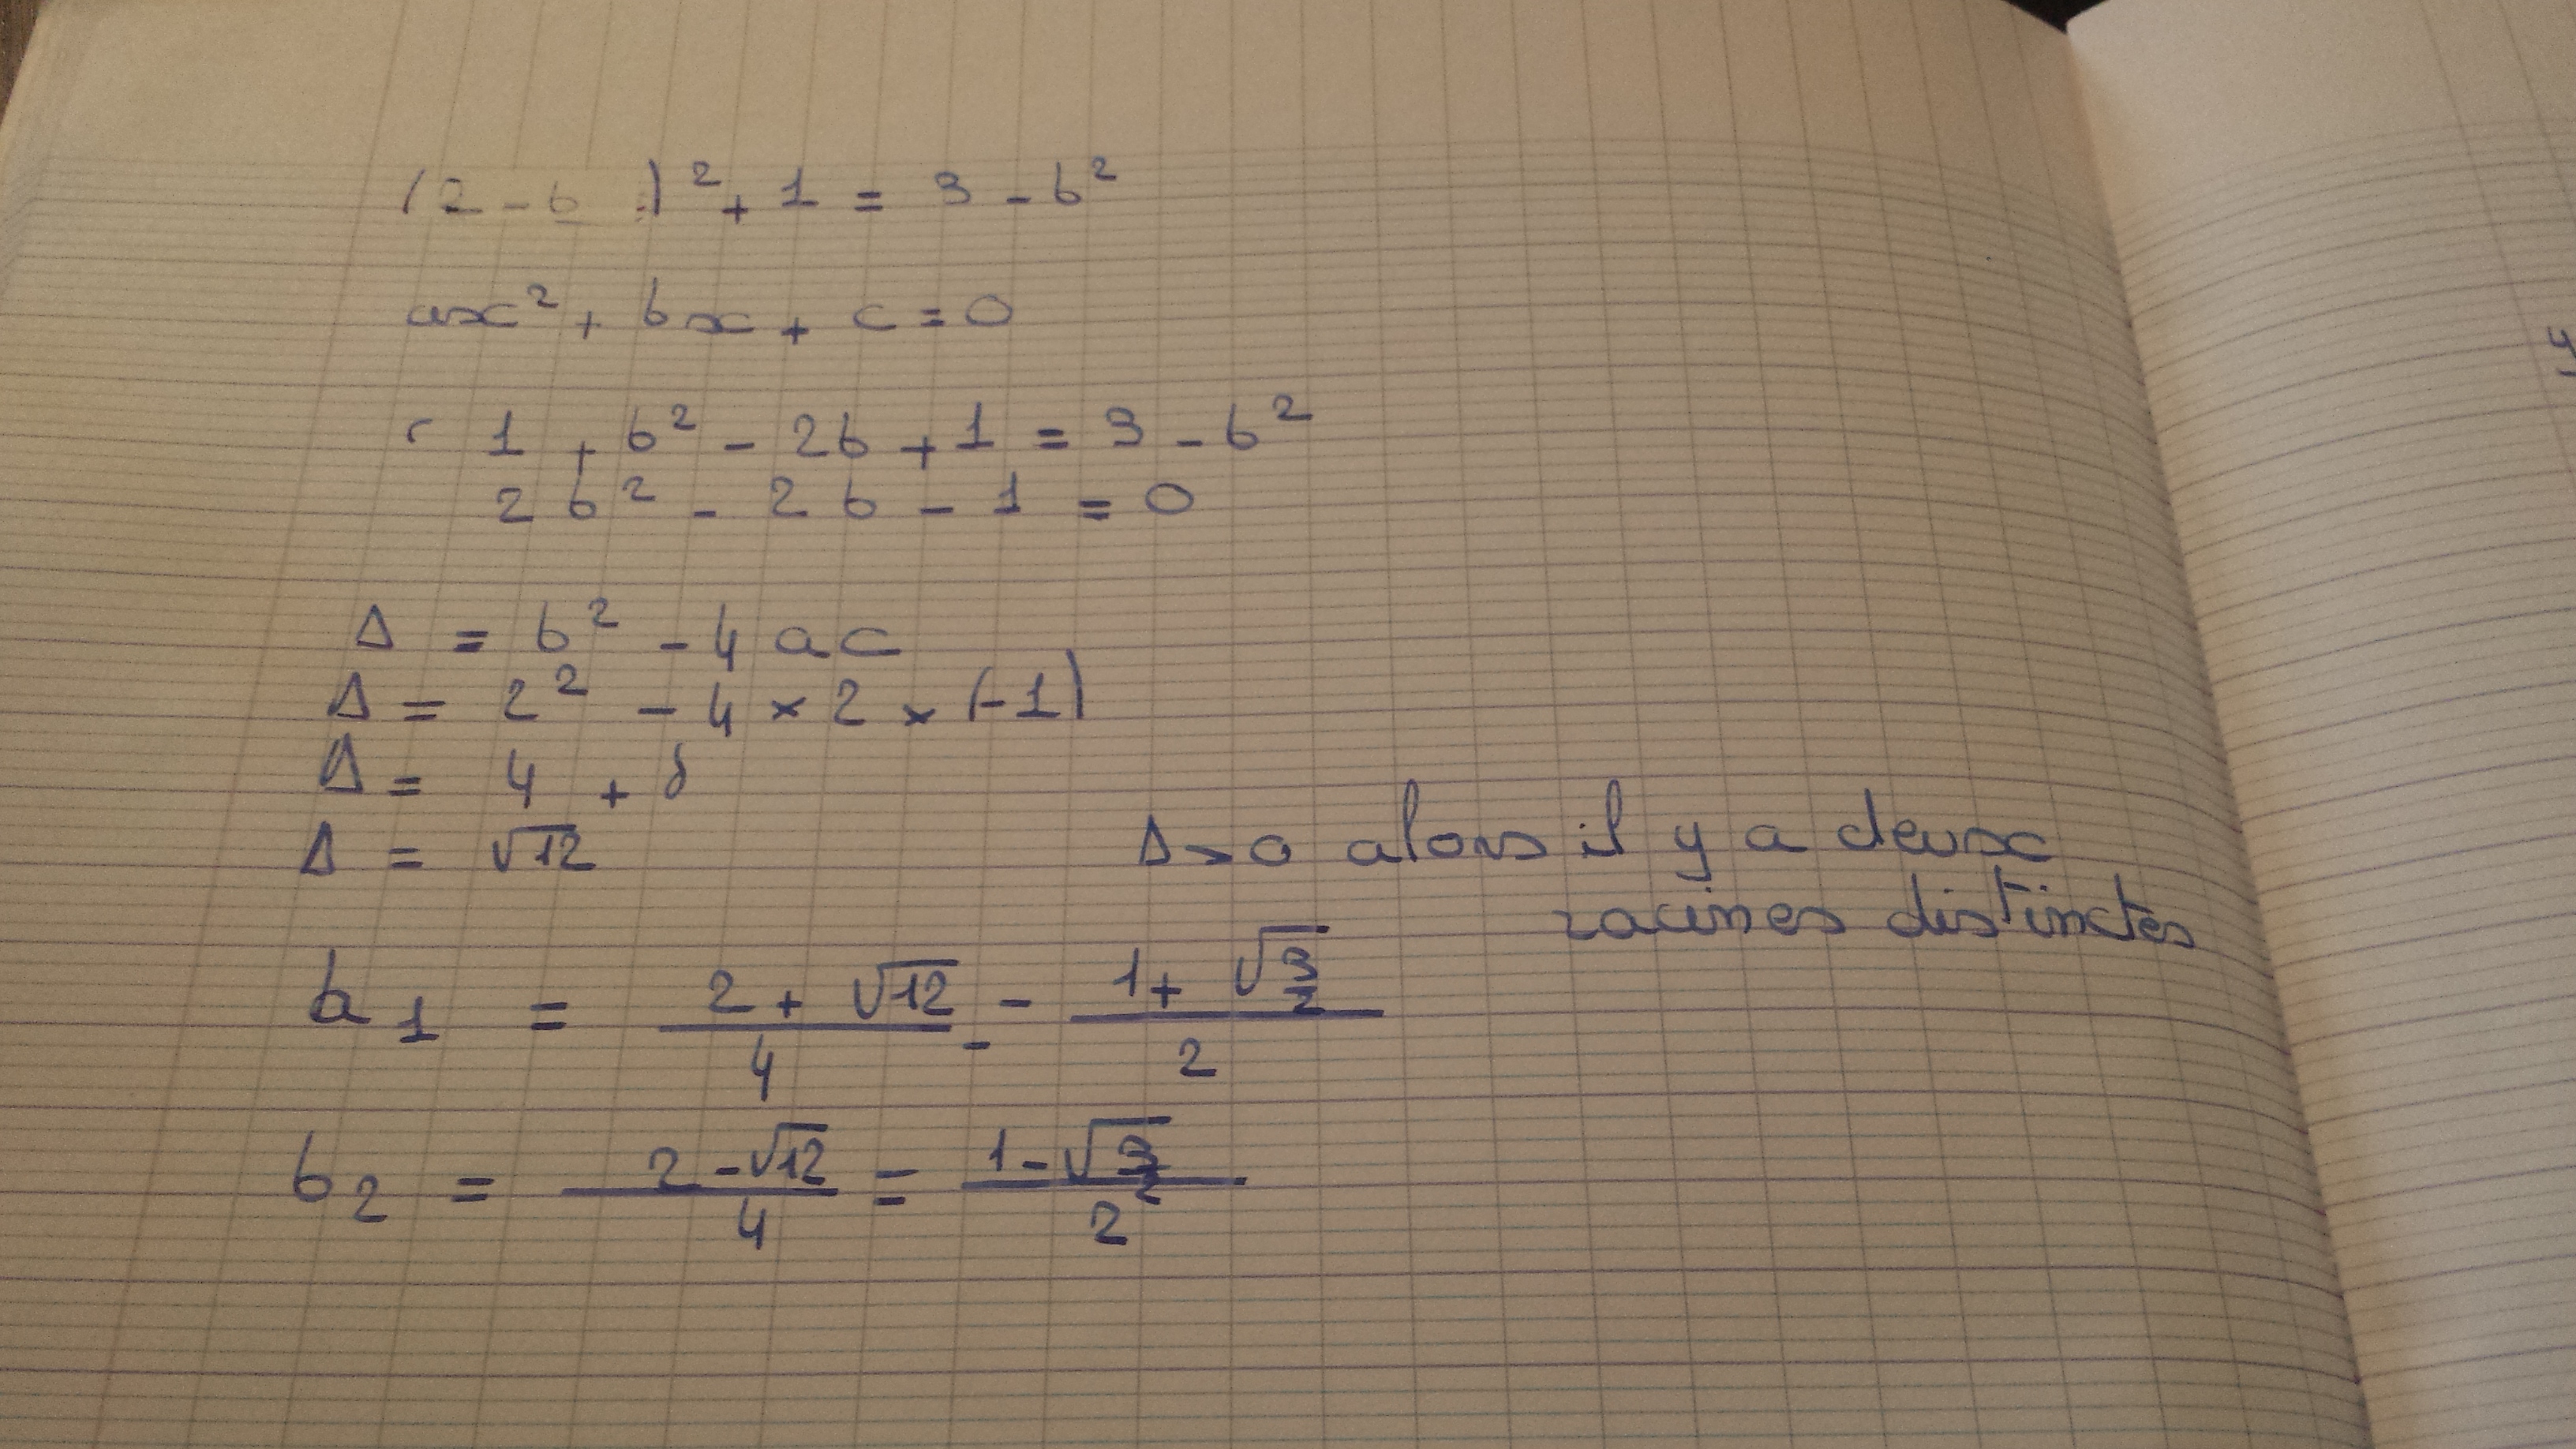 (2 - b )² + 1 = 3 - b²
ax² + bx + c = 0
1 + b² - 2b + 1 = 3 - b²
2b² - 2b - 1 = 0
Δ = b² - 4ac
Δ = 2² - 4 × 2 × (-1)
Δ = 4 + 8
Δ = √12
Δ>0 alors il y a deux
racines distinctes
b₁ = (2 + √12)/4 = (1 + √3)/2
b₂ = (2 - √12)/4 = (1 - √3)/2